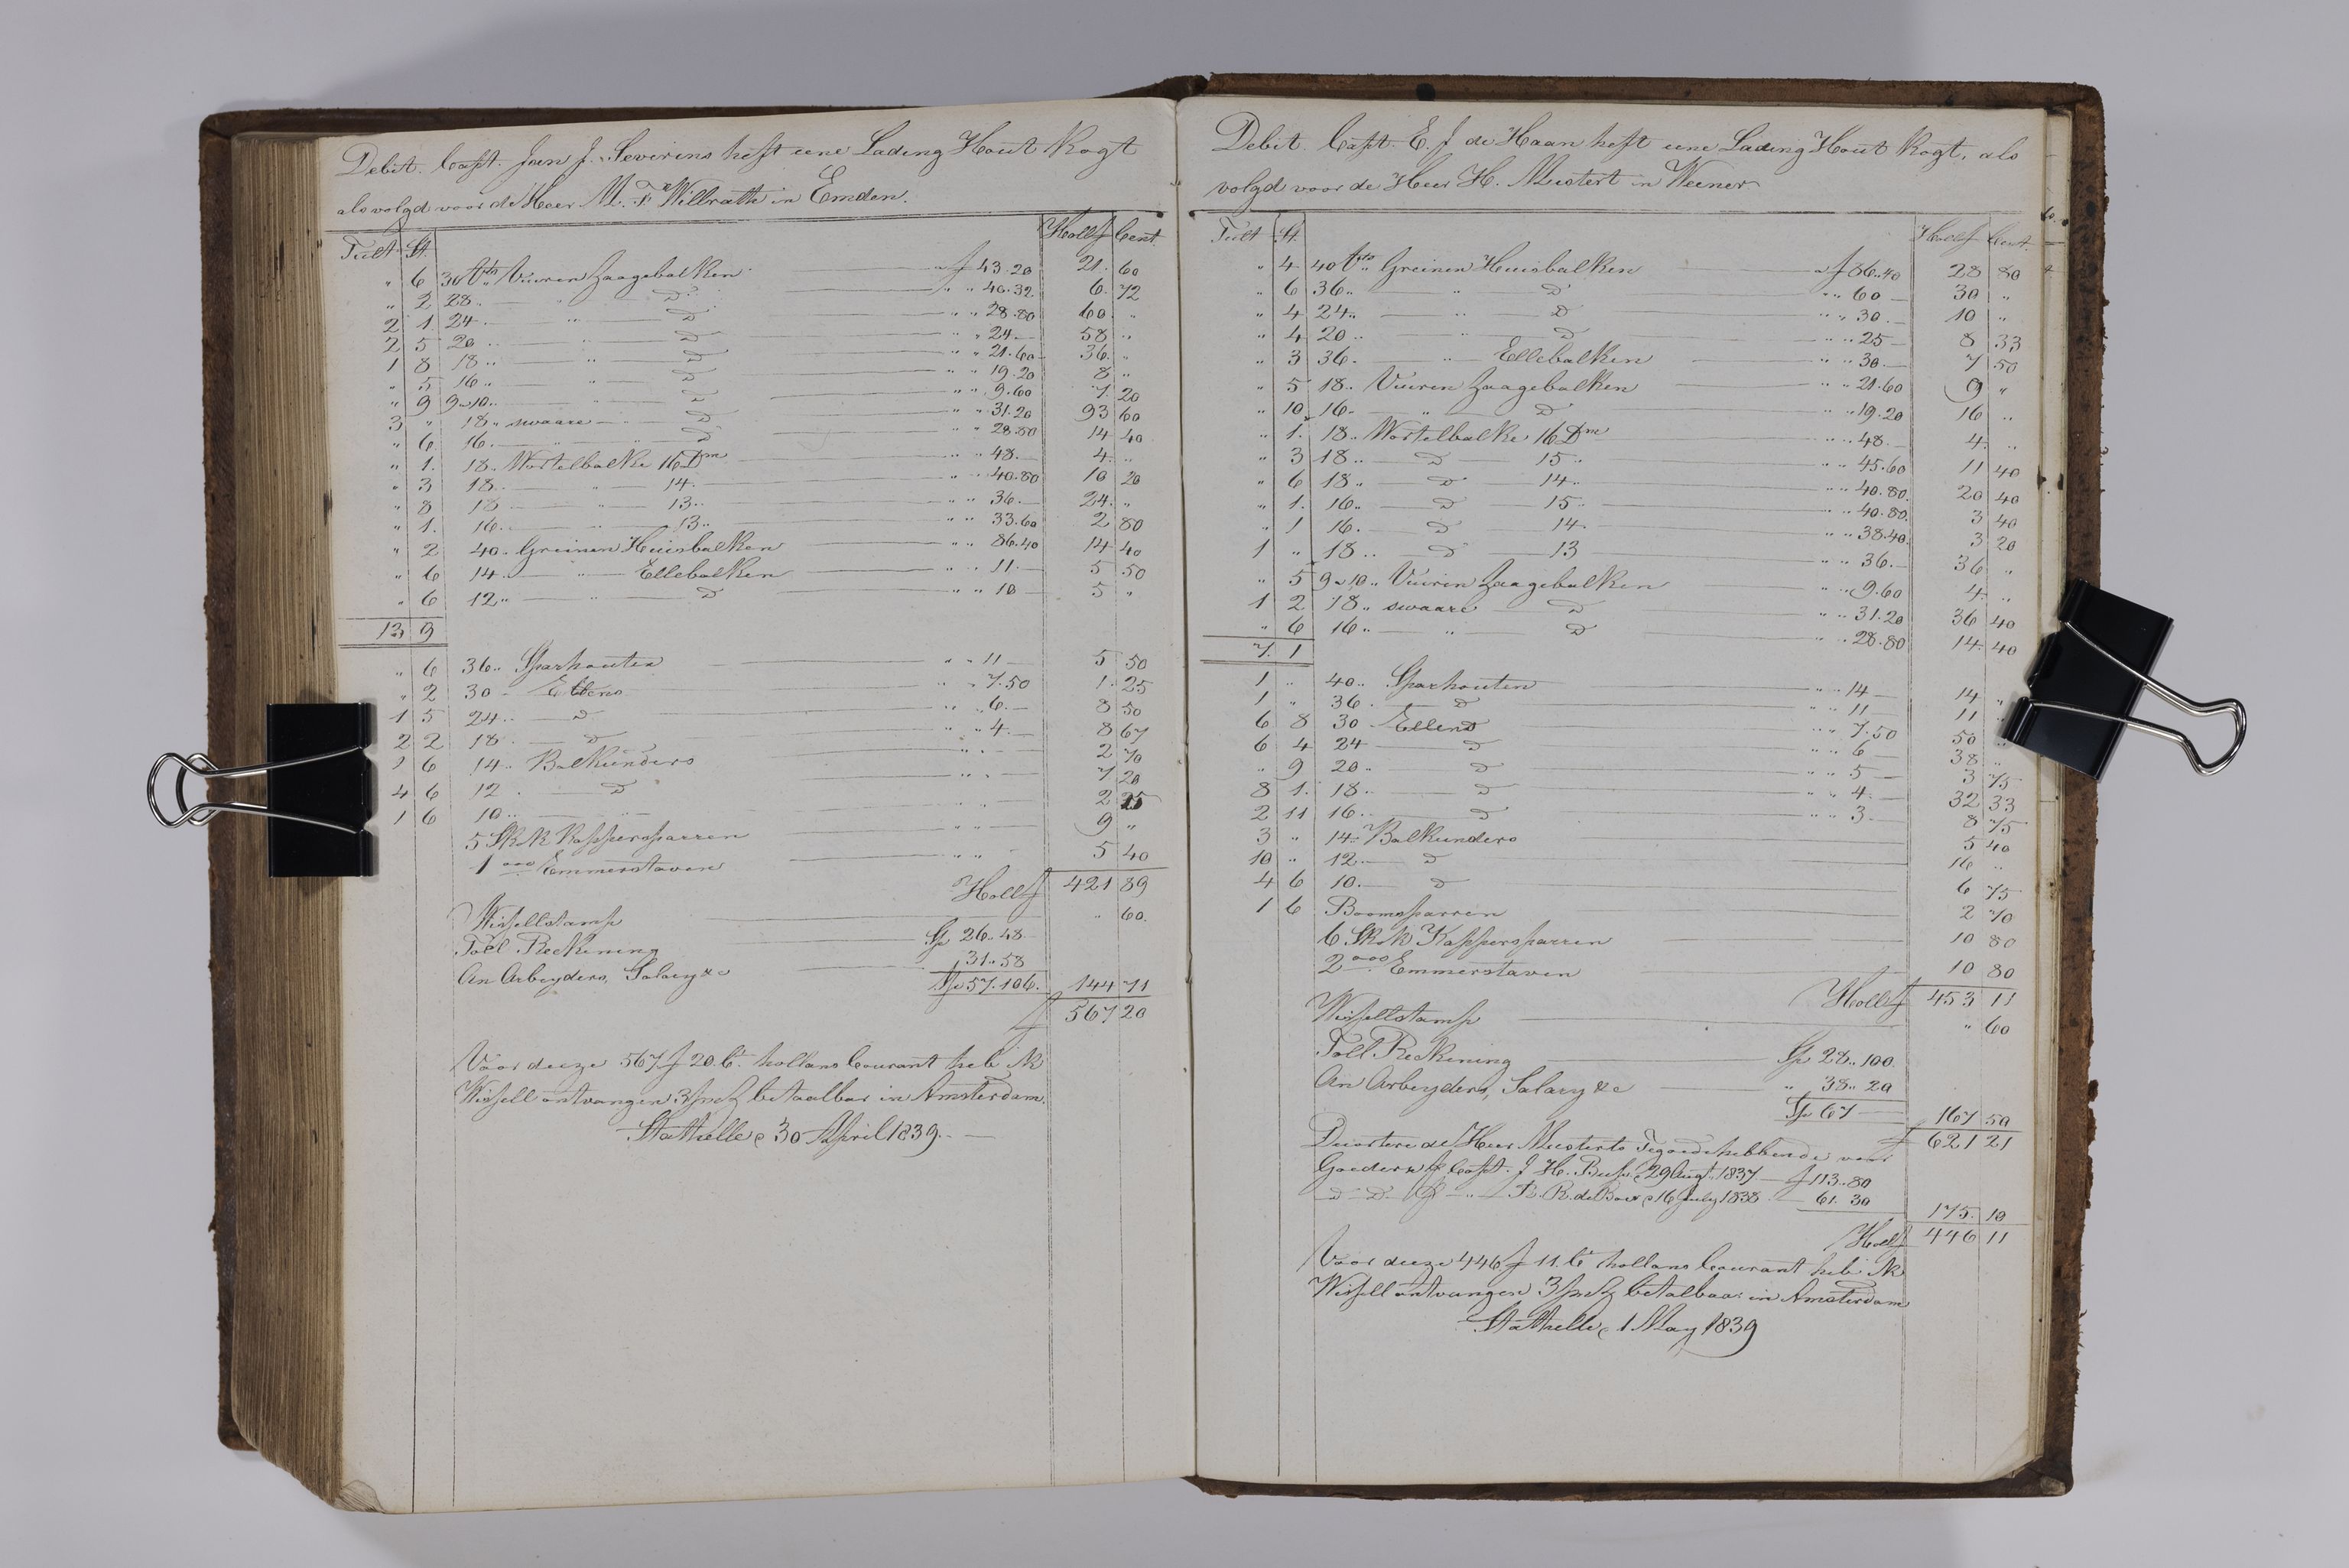 Debit. Capt. Jan J. Severins heft eene Lading Hout kogt
als volgd voor de Heer M. F. Willrath in Emden.
Tult St. Hollf Cent.
" 6 30 Vts Vuiren Zaagebalken " f 43.20 21. 60
" 2 28 " " D " " 40.32 6. 72
2 1. 24 " " D " " 28.80 60. "
2 5 20 " " D " " 24. 58 "
1 8 18 " " D " " 21.60 36. "
" 5 16 " " D " " 19.20 8 "
" 9 9 a 10 " " D " " 9.60 7. 20
3 " 18 " swaare " D " " 31.20 93 60
" 6 16 " " " D " " 28.80 14 40
" 1. 18 " Wortelbalke 16 Dm " " 48. 4. "
" 3 18 " " 14. " " 40.80 10 20
" 8 18 " " 13 " " " 36. 24. "
" 1. 16 " " 13 " " " 33.60 2 80
" 2 40 " Greinen Huisbalken " " 86.40 14 40
" 6 14 " " Ellebalken " " 11. 5 50
" 6 12 " " D " " 10 5 "
13 9
" 6 36 " Sparhouten " " 11 5 50
" 2 30 " Ellens " " 7.50 1. 25
1 5 24 " D " " 6. 8 50
2 2 18 " D " " 4. 8 67
1 6 14 " Balkunders " " 2 70
4 6 12 " D 7 20
1 6 10 " " " " 2 25
5 Skk Kappersparren " " 9 "
1 ooo Emmerstaven " " 5 40
Hollf 421 89
Wissellstamp " 60.
Toll Reckening Sp 26.. 48
An Arbeyders, Salary &c 31.. 58
Sp 57. 106. 144 71
f 567 20
Voor deeze 567 f 20. Ct. hollans Courant heb ik
Wissell ontvangen betaalbar in Amsterdam.
Stathelle 30 April 1839.
Debit. Capt. E. J. de Haan heft eene Lading Hout kogt, als
volgd voor de Heer H. Mustert in Weener
Tult St. Hollf Cent.
" 4 40 Vts " Greinen Huisbalken " f 86.40 28 80
" 6 36 " " D " " 60 30 "
" 4 24 " " D " " 30. 10 "
" 4 20 " " D " " 25 8 33
" 3 36. " Ellebalken " " 30. 7 50
" 5 18 " Vuiren Zaagebalken " " 21.60 9 "
" 10 16 " " D " " 19.20 16 "
" 1. 18 " Wortelbalke 16 Dm " " 48. 4. "
" 3 18 " D 15 " " " 45.60 11 40
" 6 18 " D 14 " " " 40.80. 20 40
" 1. 16 " D 15 " " " 40.80. 3 40
" 1 16. D 14. " " 38.40. 3 20
1 " 18 " D 13 " " 36. 36 "
" 5 9 a 10 " Vuiren Zaagebalken " " 9.60 4. "
1 2 18 " swaare D " " 31.20 36 40
" 6 16 " " D " " 28.80 14. 40
7. 1
1 " 40 " Sparhouten " " 14 14 "
1 " 36. D " " 11 11 "
6 8 30 Ellens " " 7.50 50 "
6 4 24 D " " 6 38 "
" 9 20 " D " " 5 3 75
8 1. 18 " D " " 4. 32 33
2 11 16 " D " " 3. 8 75
3 " 14 " Balkunders 5 40
10 " 12 " D 16 "
4 6 10. D 6 75
1 6 Boomsparren 2 70
6 Skk Kappersparren 10 80
2 ooo Emmerstaven 10 80
Hollf 453 11
Wissellstamp " 60
Toll Reckening Sp 28.. 100.
An Arbeyders, Salary &c " 38.. 20
Sp 67 167 50
f 621 21
de Heer Musterts Tegoedehebbende voor
Goederen p Capt. J. H. 29 Augt. 1837 f 113..80
D D p " R. R. de Boer 16 July 1838 61. 30
175. 10
Hollf 446 11
Voor deeze 446 f 11. Ct hollans Courant heb ik
Wissell ontvangen betalbaar in Amsterdam
Stathelle 1 May 1839